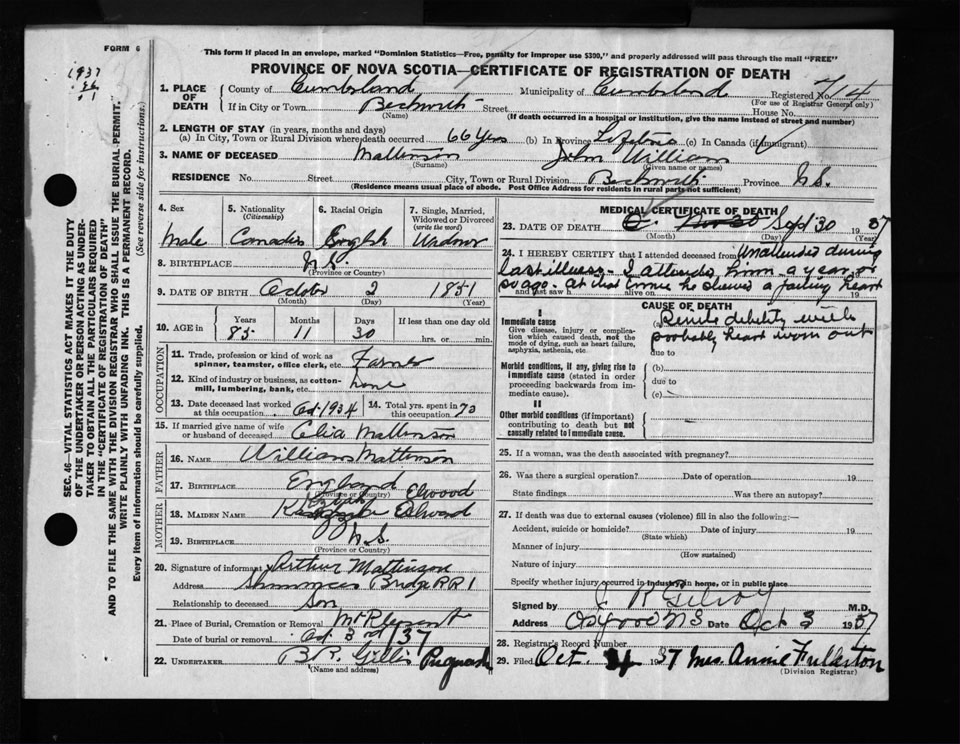 FORM 6
1937
This form if placed in an envelope, marked "Dominion Statistics—Free, penalty for improper use $300," and properly addressed will pass through the mail "FREE"
PROVINCE OF NOVA SCOTIA—CERTIFICATE OF REGISTRATION OF DEATH
SEC. 46—VITAL STATISTICS ACT MAKES IT THE DUTY
OF THE UNDERTAKER OR PERSON ACTING AS UNDER-
TAKER TO OBTAIN ALL THE PARTICULARS REQUIRED
IN THE "CERTIFICATE OF REGISTRATION OF DEATH"
AND TO FILE THE SAME WITH THE DIVISION REGISTRAR WHO SHALL ISSUE THE BURIAL PERMIT.
WRITE PLAINLY WITH UNFADING INK. THIS IS A PERMANENT RECORD.
Every item of information should be carefully supplied. (See reverse side for instructions.)
1. PLACE OF DEATH
County of Cumberland Municipality of Cumberland Registered No. 74
(For use of Registrar General only)
If in City or Town Beckwith Street House No.
(Name) (If death occurred in a hospital or institution, give the name instead of street and number)
2. LENGTH OF STAY (in years, months and days)
(a) In City, Town or Rural Division where death occurred 66 Yrs (b) In Province Lifetime (c) In Canada (if immigrant)
3. NAME OF DECEASED Mattinson John William
(Surname) (Given name or names)
RESIDENCE No. Street City, Town or Rural Division Beckwith Province N.S.
(Residence means usual place of abode. Post Office Address for residents in rural parts not sufficient)
4. Sex Male
5. Nationality (Citizenship) Canadian
6. Racial Origin English
7. Single, Married, Widowed or Divorced (write the word) Widower
8. BIRTHPLACE N.S.
(Province or Country)
9. DATE OF BIRTH October 2 1851
(Month) (Day) (Year)
10. AGE in Years 85 Months 11 Days 30 If less than one day old hrs. or min.
OCCUPATION
11. Trade, profession or kind of work as spinner, teamster, office clerk, etc. Farmer
12. Kind of industry or business, as cotton-mill, lumbering, bank, etc. none
13. Date deceased last worked at this occupation Oct. 1934 14. Total yrs. spent in this occupation 70
15. If married give name of wife or husband of deceased Celia Mattinson
FATHER
16. NAME William Mattinson
17. BIRTHPLACE England
(Province or Country)
MOTHER
Elwood
18. MAIDEN NAME
19. BIRTHPLACE N.S.
(Province or Country)
20. Signature of informant Arthur Mattinson
Address Bridge RR 1
Relationship to deceased Son
21. Place of Burial, Cremation or Removal Mt Pleasant
Date of burial or removal Oct 3rd /37
22. UNDERTAKER B. R. Gillis Pugwash
(Name and address)
MEDICAL CERTIFICATE OF DEATH
23. DATE OF DEATH Sept 30 1937
(Month) (Day) (Year)
24. I HEREBY CERTIFY that I attended deceased from Unattended during
last illness - I attended him a year or
so ago. At that time he showed a failing heart
and last saw h alive on 19
CAUSE OF DEATH
I
Immediate cause
Give disease, injury or complication which caused death, not the mode of dying, such as heart failure, asphyxia, asthenia, etc.
(a) Senile debility with
probably heart worn out
due to
Morbid conditions, if any, giving rise to immediate cause (stated in order proceeding backwards from immediate cause).
(b)
due to
(c)
II
Other morbid conditions (if important) contributing to death but not causally related to immediate cause.
25. If a woman, was the death associated with pregnancy?
26. Was there a surgical operation? Date of operation 19
State findings Was there an autopsy?
27. If death was due to external causes (violence) fill in also the following:—
Accident, suicide or homicide? Date of injury 19
(State which)
Manner of injury
(How sustained)
Nature of injury
Specify whether injury occurred in industry, in home, or in public place
Signed by R Gilroy M.D.
Address Oxford NS Date Oct 3 1937
28. Registrar's Record Number
29. Filed Oct. 4 1937 Mrs. Annie Fullerton
(Division Registrar)